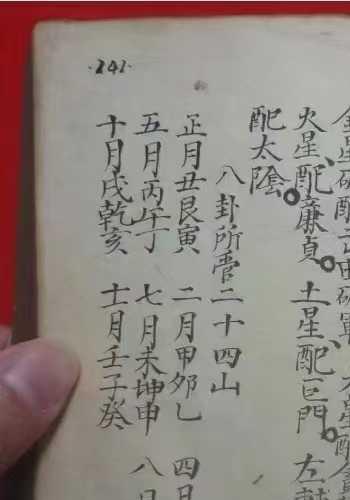 ·241·
火星、配廉貞。土星、配巨門。左
配太陰。
八卦所管二十四山
正月丑艮寅 二月甲夘乙 四月
五月丙午丁 七月未坤申 八
十月戌乾亥 十一月壬子癸